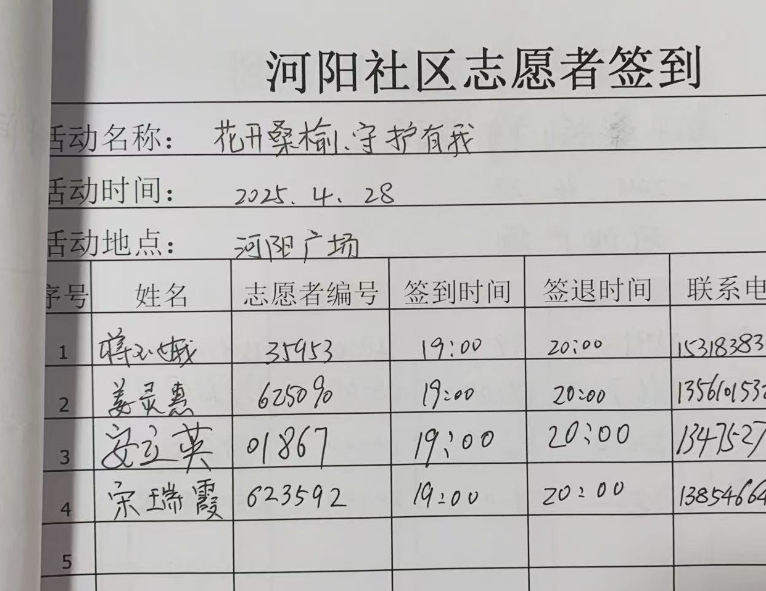 河阳社区志愿者签到
活动名称： 花开桑榆、守护有我
活动时间： 2025.4.28
活动地点： 河阳广场
序号 姓名 志愿者编号 签到时间 签退时间 联系电
1 蒋 娥 35953 19:00 20:00 15318383
2 姜灵惠 625090 19:00 20:00 135610153
3 安立英 01867 19:00 20:00 1347527
4 宋瑞霞 623592 19:00 20:00 13854664
5